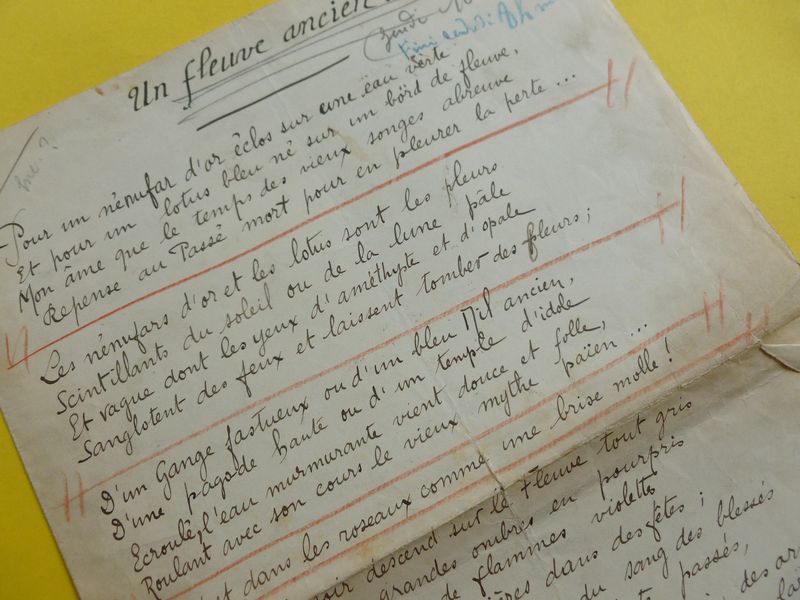 Un fleuve ancien
(Jeudi
inc. ?
Pour un nénufar d'or éclos sur une eau verte
Et pour un lotus bleu né sur un bord de fleuve,
Mon âme que le temps des vieux songes abreuve
Repense au Passé mort pour en pleurer la perte...
Les nénufars d'or et les lotus sont les pleurs
Scintillants du soleil ou de la lune pâle
Et vague dont les yeux d'améthyste et d'opale
Sanglotent des feux et laissent tomber des fleurs ;
D'un Gange fastueux ou d'un bleu Nil ancien,
D'une pagode haute ou d'un temple d'idole
Ecroulé, l'eau murmurante vient douce et folle,
Roulant avec son cours le vieux mythe païen...
et dans les roseaux comme une brise molle !
soir descend sur le Fleuve tout gris
grandes ombres en pourpris
de flammes violettes
dans des fêtes ;
du sang des blessés
passés,